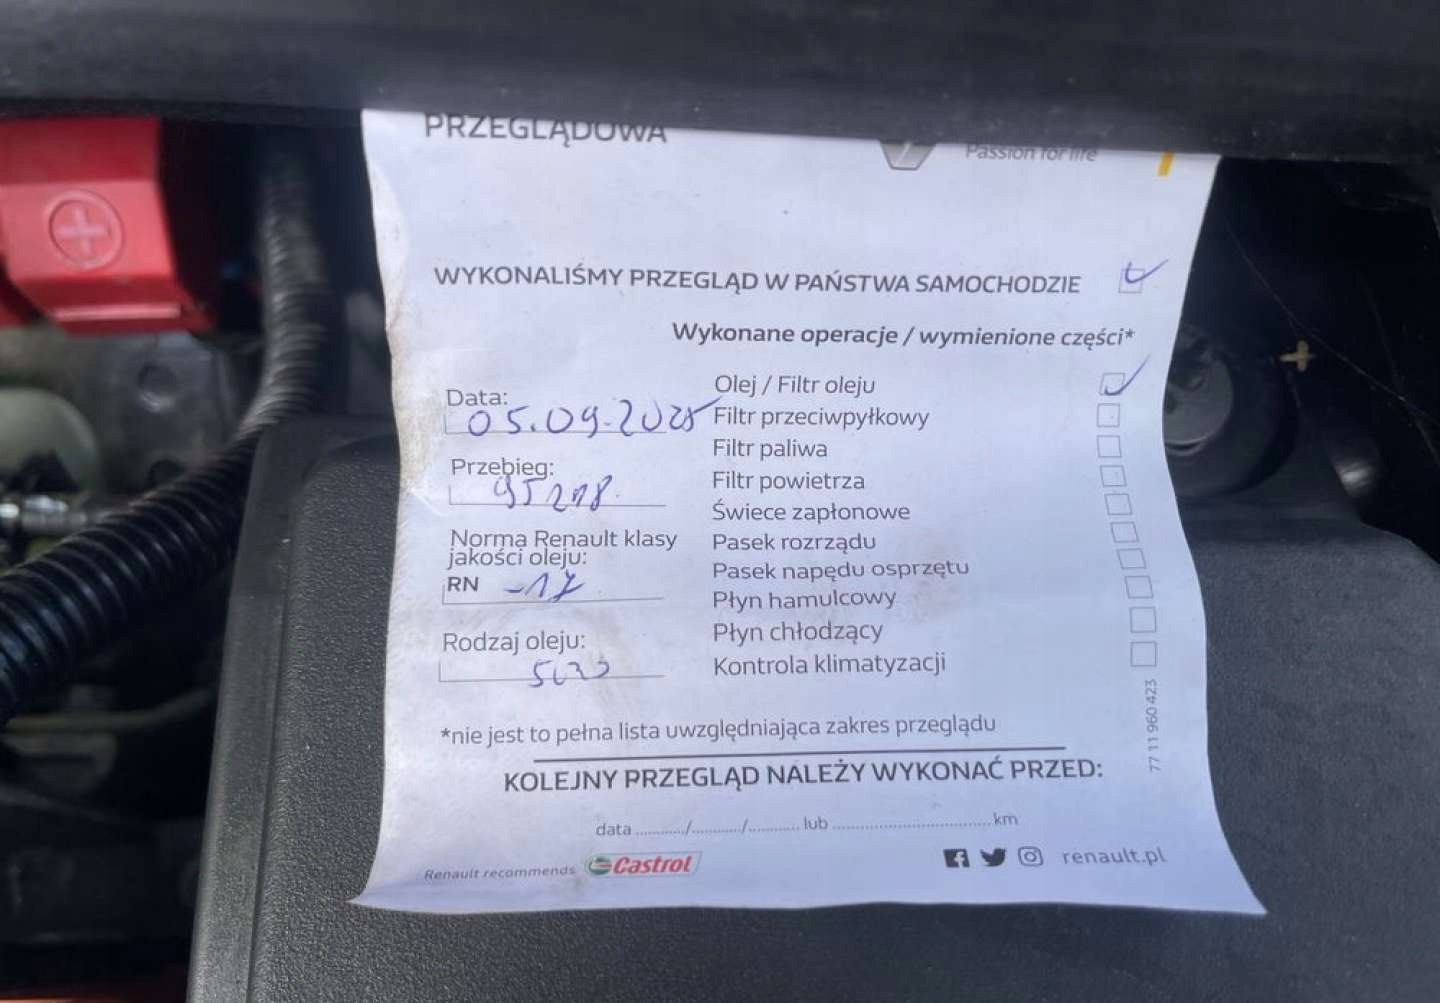 PRZEGLĄDOWA
Passion for life
WYKONALIŚMY PRZEGLĄD W PAŃSTWA SAMOCHODZIE
Wykonane operacje / wymienione części*
Data:
05.09.2025
Przebieg:
95218
Norma Renault klasy
jakości oleju:
RN -17
Rodzaj oleju:
Olej / Filtr oleju
Filtr przeciwpyłkowy
Filtr paliwa
Filtr powietrza
Świece zapłonowe
Pasek rozrządu
Pasek napędu osprzętu
Płyn hamulcowy
Płyn chłodzący
Kontrola klimatyzacji
*nie jest to pełna lista uwzględniająca zakres przeglądu
77 11 960 423
KOLEJNY PRZEGLĄD NALEŻY WYKONAĆ PRZED:
data ............/............/............ lub .....................................km
Renault recommends Castrol
renault.pl